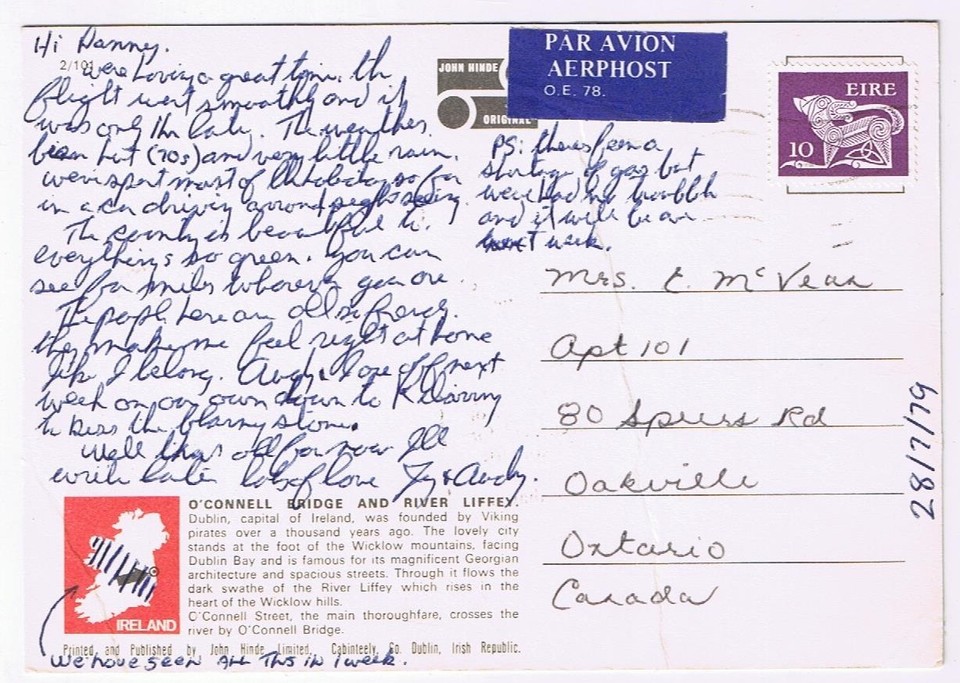 Hi Danney.
2/101
were having a great time. the
flight went smoothly and it
was only 1hr late. The weathers
been hot (70s) and very little rain.
weve spent most of the so far
in a car driving around sightseeing.
The county is beautiful &
everythings so green. you can
see for miles wherever you are.
The people here are all so friendly.
they make me feel right at home
like I belong. Andy & I are off next
week on our own down to Kilarny
to kiss the blarny stone.
Well thats all for now Ill
write later lots of love & Andy.
JOHN HINDE
ORIGINAL
PAR AVION
AERPHOST
O.E. 78.
EIRE
10
PS: theres been a
shortage of gas but
weve had no trouble
and it will be over
next week.
Mrs. E. McVean
Apt 101
80 Speers Rd
Oakville
Ontario
Canada
28/7/79
O'CONNELL BRIDGE AND RIVER LIFFEY.
Dublin, capital of Ireland, was founded by Viking
pirates over a thousand years ago. The lovely city
stands at the foot of the Wicklow mountains, facing
Dublin Bay and is famous for its magnificent Georgian
architecture and spacious streets. Through it flows the
dark swathe of the River Liffey which rises in the
heart of the Wicklow hills.
O'Connell Street, the main thoroughfare, crosses the
river by O'Connell Bridge.
IRELAND
Printed and Published by John Hinde Limited, Cabinteely, Co. Dublin, Irish Republic.
We have seen ALL THIS in 1 week.